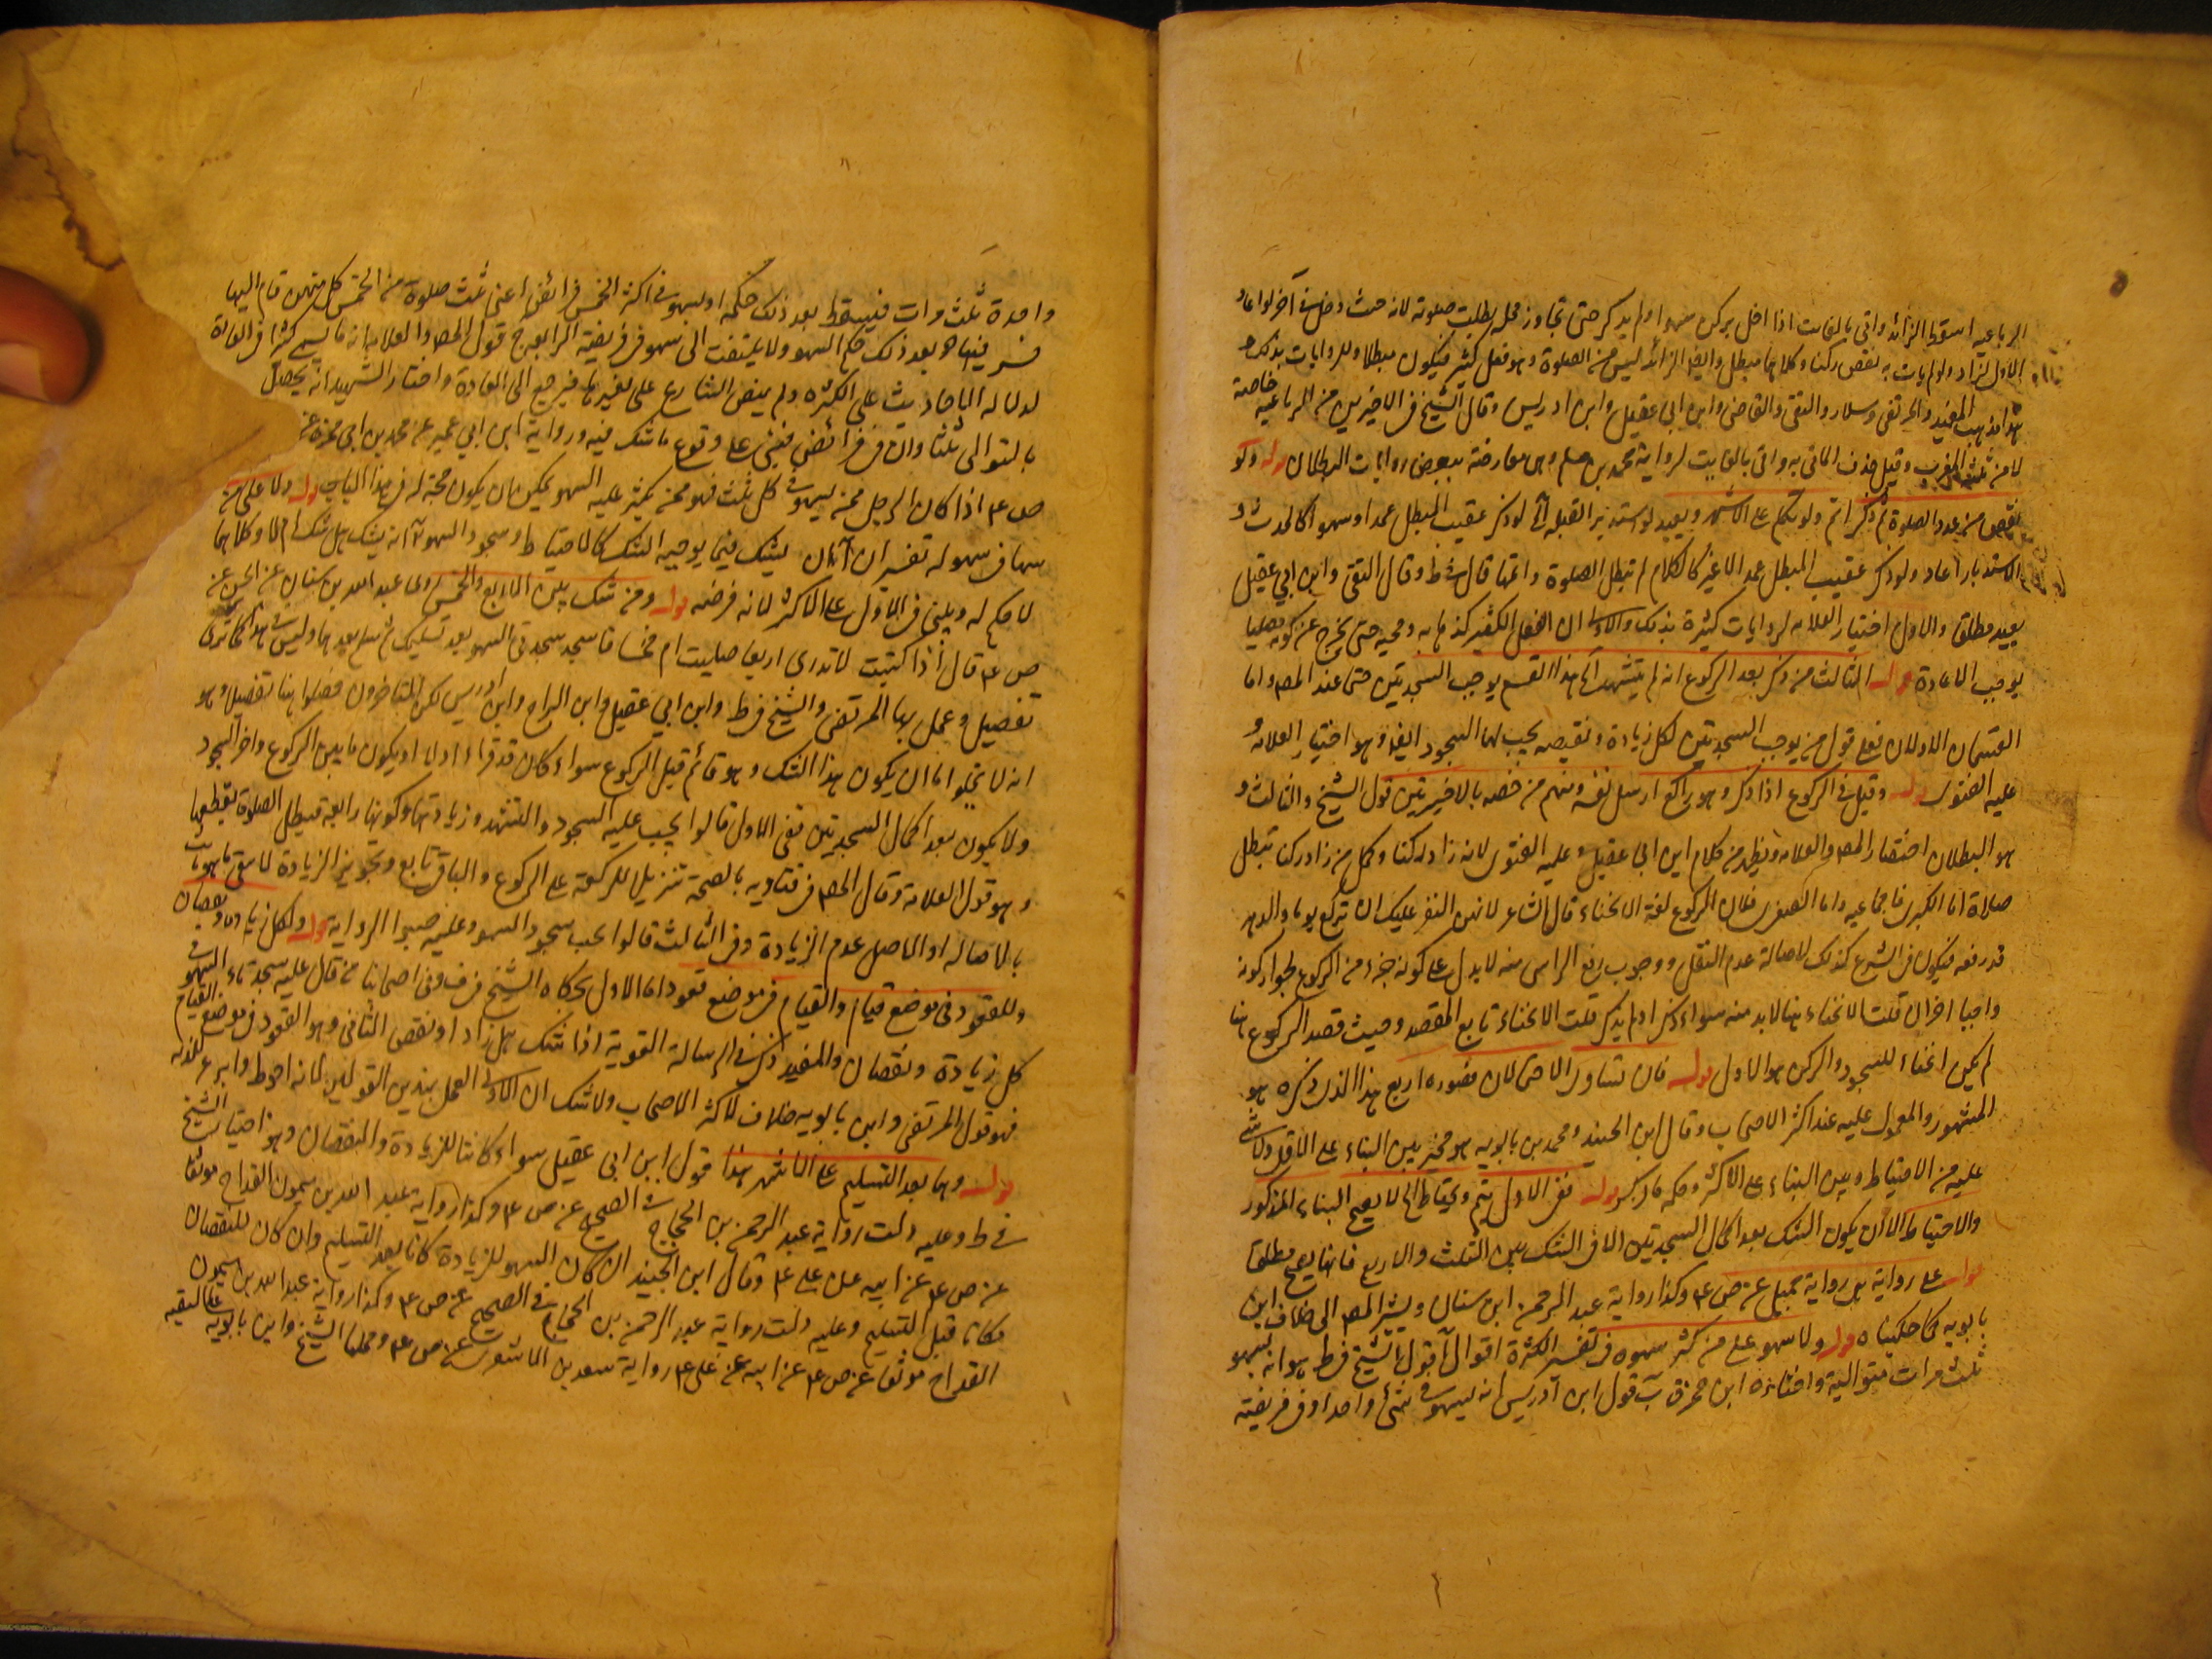 الرباعية اسقط الزائد واتى بالفايت اذا اخل بركن سهوا ولم يذكر حتى تجاوز محله بطلت صلوته لانه حيث دخل في آخر لو اعاد
الاول لزاد ولو لم يات به لنقص ركنا وكلاهما مبطل وايضا الزائد ليس من الصلوة وهو فعل كثير فيكون مبطلا وللروايات بذلك و
هذا مذهب المفيد والمرتضى وسلار والتقى والقاضى وابن ابى عقيل وابن ادريس وقال الشيخ في الاخيرتين من الرباعية خاصة
لا من ثلثه المغرب وقيل حذف الماتى به واتى بالفايت لرواية محمد بن مسلم وهى معارضة ببعض روايات البطلان قوله ولو
نقص من عدد الصلوة ثم ذكر اتم ولو تكلم على الاشهر ويعيد لو استدبر القبلة الخ لو ذكر عقيب المبطل عمدا وسهوا كالحدث و
الاستدبار اعاد ولو ذكر عقيب المبطل عمدا لا غير كالكلام لم تبطل الصلوة واتمها قال الشيخ في ط وقال التقى وابن ابي عقيل
يعيد مطلقا والاول اختيار العلامه لروايات كثيرة بذلك والاولى ان الفعل الكثير كذهابه ومجيه حتى يخرج عن كونه مصليا
يوجب الاعادة قوله الثالث من ذكر بعد الركوع انه لم يتشهد الخ هذا القسم يوجب السجدتين حتى عند المصـ واما
القسمان الاولان فعلى قول من يوجب السجدتين لكل زيادة ونقيصه يجب لهما السجود ايضا وهو اختيار العلامة و
عليه الفتوى قوله وقيل في الركوع اذا ذكر وهو راكع ارسل نفسه ومنهم من خصه بالاخيرتين قول الشيخ والثالث و
هو البطلان اختيار المصـ والعلامه ويظهر من كلام ابن ابى عقيل وعليه الفتوى لانه زاد ركنا وكل من زاد ركنا تبطل
صلاة اما الكبرى فاجماعيه واما الصغرى فلان الركوع لغة الانحناء قال الشاعر لا تهين الفقير عليك ان تركع يوما والدهر
قد رفعه فيكون في الشرع كذلك لاصالة عدم النقل ووجوب رفع الراس منه لا يدل على كونه جزء من الركوع لجواز كونه
واجبا اخر ان قلت الانحناء هنا لابد منه سواء ذكر او لم يذكر قلت الانحناء تابع المقصد وحيث قصد الركوع هنا
لم يكن انحناء للسجود والركن هو الاول قوله فان تساوى الاحتمالان فصوره اربع هذا الذى ذكره هو
المشهور والمعمول عليه عند اكثر الاصحاب وقال ابن الجنيد ومحمد بن بابويه هو مخير بين البناء على الاقل ولا شئ
عليه من الاحتياط وبين البناء على الاكثر وحكمه ما ذكر قوله ففى الاول يتم ويحتاط الخ لا يصح البناء المذكور
والاحتياط الا ان يكون الشك بعد اكمال السجدتين الا في الشك بين الثلث والاربع فانها يصح مطلقا
قوله على رواية هى رواية جميل عن ص ع وكذا رواية عبد الرحمن ابن سنان ويشير المصـ الى خلاف ابن
بابويه كما حكيناه قوله ولا سهو على من كثر سهوه في تفسير الكثرة اقوال آ قول الشيخ في ط هو انه يسهو
ثلث مرات متوالية واختاره ابن حمزة ب قول ابن ادريس انه يسهو في شئ واحد او في فريضة
واحدة ثلث مرات فيسقط بعد ذلك حكمه او يسهو في اكثر الخمس فرائض اعنى ثلث صلوة من الخمس كل منهن قام اليها
فسهى فيها بعد ذلك حكم السهو ولا يلتفت الى سهو في فريضة الرابعة ج قول المصـ والعلامه انه ما يسمى كثيرا في العادة
لدلاله الاحاديث على الكثره ولم ينص الشارع على تفسيرها فيرجع الى العادة واختار الشهيد انه يحصل
بالتوالى ثلثا وان في فرائض فيبنى على وقوع ما شك فيه ورواية ابن ابي عمير عن محمد بن ابي حمزة عن
ص ع اذا كان الرجل ممن يسهو في كل ثلث فهو ممن يكثر عليه السهو يمكن ان يكون حجة له في هذا الباب قوله ولا على من
سها في سهو له تفسيران آ ان يشك فيما يوجبه الشك كالاحتياط وسجود السهو ب آ انه يشك هل شك ام لا وكلاهما
لا حكم له ويبنى في الاول على الاكثر لانه فرضه قوله ومن شك بين الاربع والخمس روى عبد الله بن سنان عن الحسن عن
ص ع قال اذا كنت لا تدرى اربعا صليت ام خمسا فاسجد سجدتى السهو بعد تسليمك ثم سلم بعدهما وليس في هذا كما ترى
تفصيل وعمل بها المرتضى والشيخ في ط وابن ابي عقيل وابن البراج وابن ادريس لكن المتاخرون فصلوا هنا تفصيلا وهو
انه لا يخلوا اما ان يكون هذا الشك وهو قائم قبل الركوع سواء كان قد قراء اولا او يكون ما بين الركوع واخر السجود
ولا يكون بعد اكمال السجدتين ففى الاول قالوا يجب عليه السجود والتشهد وزيادتها وكونها رابعة فيبطل الصلوة لقطعها
وهو قول العلامة وقال المصـ في فتاويه بالصحة تنزيلا للركعة على الركوع والباقى تابع وتجويز الزيادة لا ينفى ما هو ثابت
بالاصالة اذ الاصل عدم الزيادة وفى الثالث قالوا يجب سجود السهو وعليه صبوا الرواية قوله ولكل زيادة ونقصان
وللقعود في موضع قيام والقيام في موضع قعود اما الاول حكاه الشيخ في ف وفي اصحابنا من قال عليه سجدتا السهو في
كل زيادة ونقصان والمفيد ذكر في الرسالة القوية اذا شك هل زاد او نقص الثانى وهو القعود في موضع القيام
فهو قول المرتضى وابن بابويه خلاف لاكثر الاصحاب ولا شك ان الاولى العمل بهذين القولين لانه احوط وابرء للذمه
قوله وهما بعد التسليم على الاشهر هذا قول ابن ابى عقيل سواء كانتا للزيادة والنقصان وهو اختيار الشيخ
في ط وعليه دلت رواية عبد الرحمن بن الحجاج في الصحيح عن ص ع وكذا رواية عبد الله بن ميمون القداح موثقا
عن ص ع عن ابيه عن على ع وقال ابن الجنيد ان كان السهو للزيادة كانا بعد التسليم وان كان للنقصان
فكانا قبل التسليم وعليه دلت رواية عبد الرحمن بن الحجاج في الصحيح عن ص ع وكذا رواية عبد الله بن ميمون
القداح موثقا عن ص ع عن ابيه عن على ع رواية سعد بن الاشعرى عن ص ع وحملها الشيخ وابن بابويه على التقيه